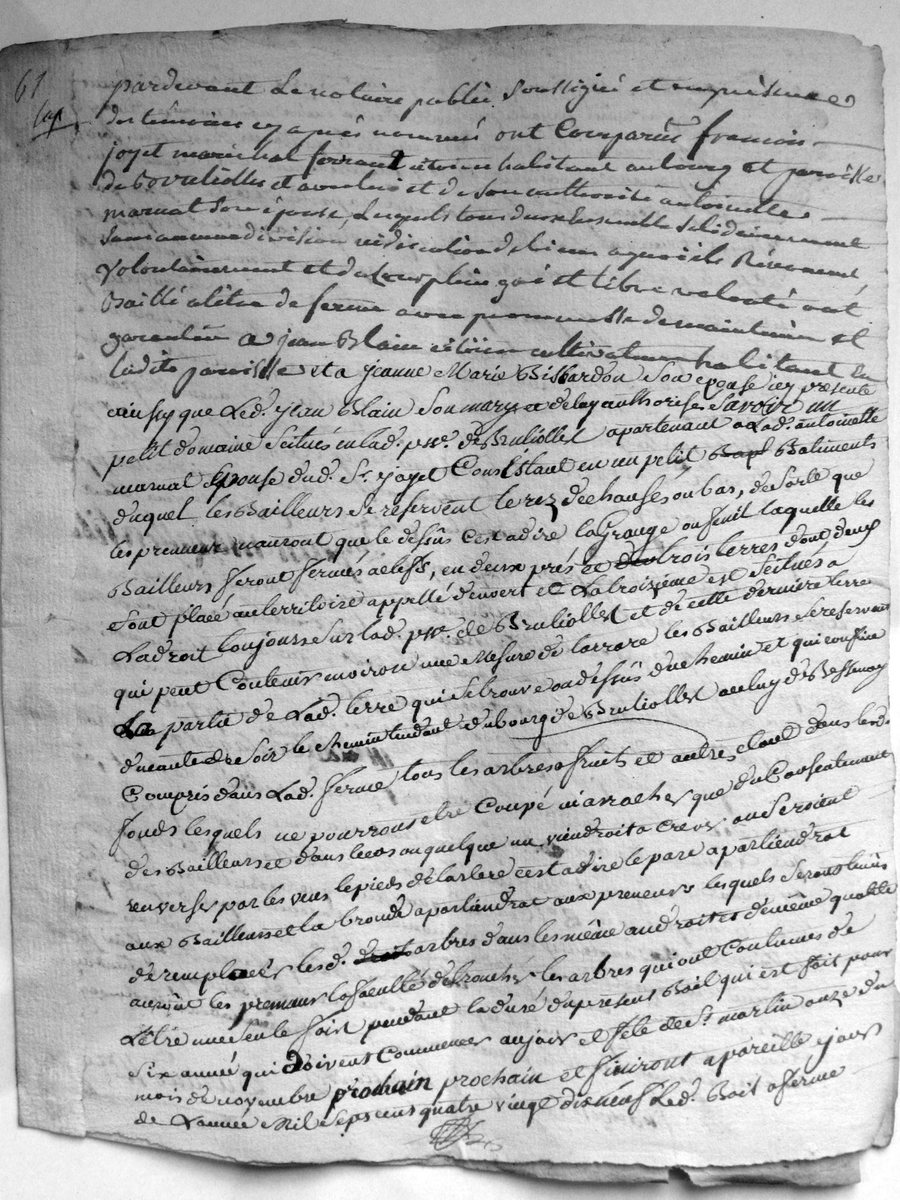 61
pardevant Le notaire public Soussigné et en présence
des témoins cy apres nommés ont Comparus françois
joyet maréchal ferrant citoien habitant au bourg et paroisse
de Brulliolles et avec lui et de Son authorité antoinette
marnat Son épouse, Lesquels tous deux Ensemble Solidairement
Sans aucune division ni discution de biens a quoi ils Renoncent
Volontairement et de Leur plein gré et libre volonté ont
Baillé a titre de ferme avec promesse de maintenir et
garentir a jean Blain citoien cultivateur habitant en
ladite paroisse et a jeanne Marie Bissardon Son epouse icy presente
ainsy que Led. jean Blain Son mary et de luy authorisé Savoir un
petit domaine Scitués en lad. psse. de Brulioles apartenant a Lad. antoinette
marnat Epouse dud. Sr. joyet Consistant en un petit Batiments
duquel les Bailleurs Se réservent le rez de chaussés ou bas, de Sorte que
les preneur n'auront que le dessus c'est a dire la Grange ou fenil laquelle les
Bailleurs feront fermés a clefs, en deux prés et trois terres dont deux
Sont placé au territoire appellé denvert et La troizieme est Scitués a
Ladroit toujours Sur lad. psse. de Brulioles et de cette derniere terre
qui peut Contenir environ une Mesure de les Bailleurs se reservent
La partie de Lad. terre qui Se trouve au dessus du chemin et qui confine
du cauté de Soir le chemin tendant du bourg de Brulioles au de Bessenay
Compris dans Lad. ferme tous les arbres fruits et autres etant dans lesd.
fonds lesquels ne pourront etre Coupé ni arraches que du Consentement
des Bailleurs et dans le cas ou quelque un viendroit a Crever ou Seroient
renverses par les vens le pieds de larbre c'est a dire le apartiendrat
aux Bailleurs et la apartiendrat aux preneurs lesquels Seront tenus
de remplacés lesd. arbres dans les même androits et de même qualité
auront les preneurs la faculté de les arbres qui ont Coutumes de
L'être une Seule fois pendant la durée du present Bail qui est fait pour
Six année qui doivent Commences au jour et fete de St. martin onze du
mois de novembre prochain prochain et finiront a pareille jour
de L'année Mil Sept cent quatre vingt dix neuf Led. Bail a ferme